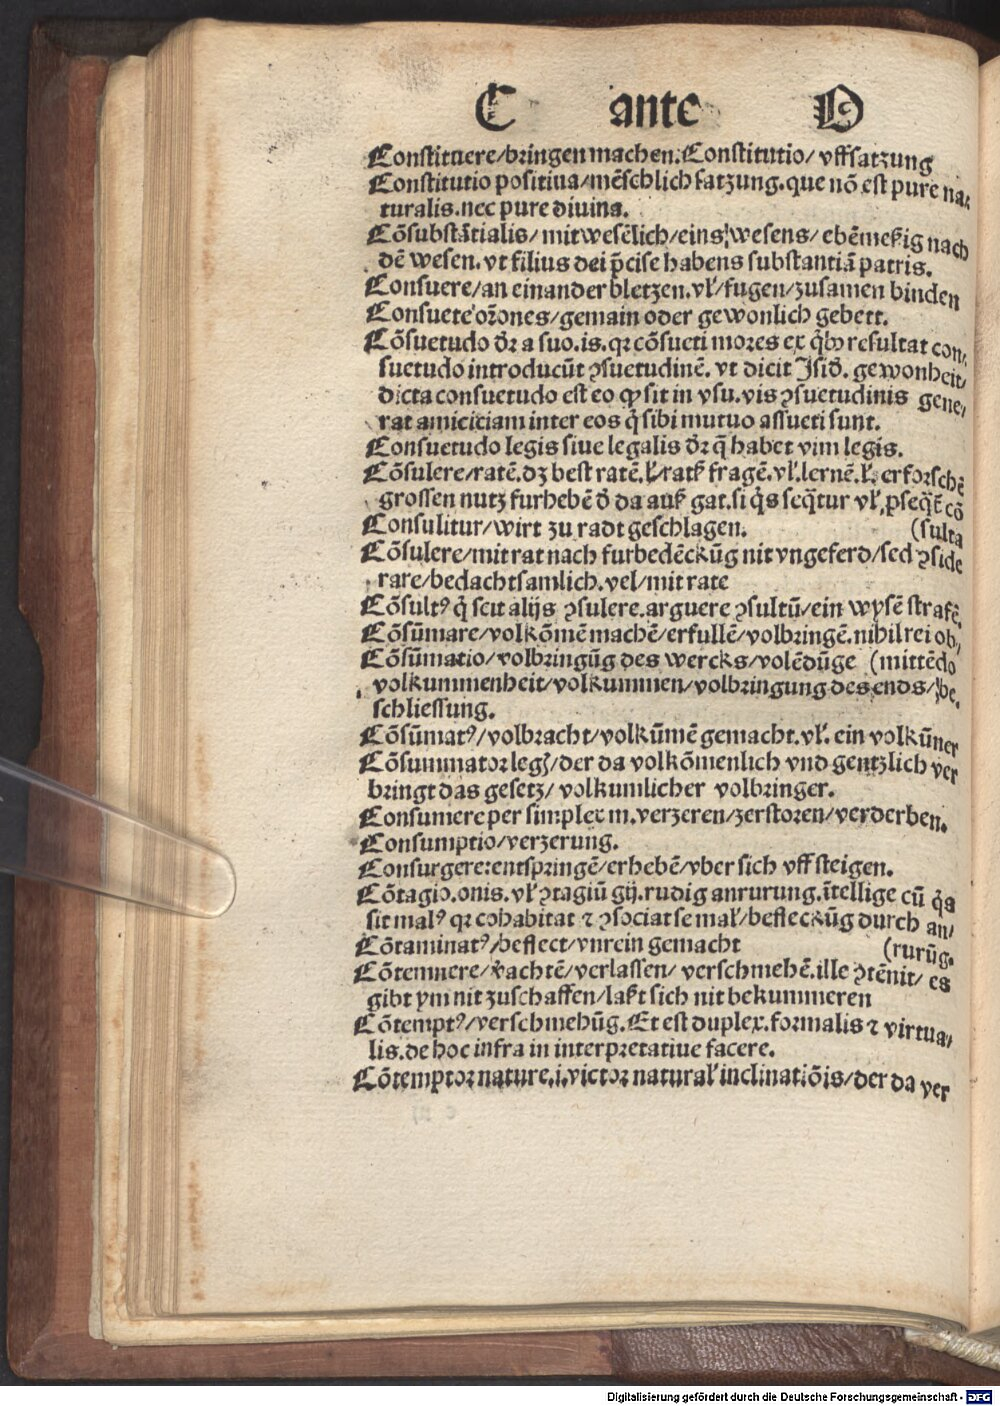 C ante O
Constituere/bringen machen. Constitutio/ vffsatzung
Constitutio positiua/mēschlich satzung. que nō est pure na⸗
turalis. nec pure diuina.
Cōsubstātialis/ mitwesēlich/eins wesens/ ebēmeßig nach
dē wesen. vt filius dei p̄cise habens substantiā patris.
Consuere/an einander bletzen. vl̕/fugen/zusamen binden
Consuete orōnes/gemain oder gewonlich gebett.
Cōsuetudo dr̄ a suo. is. qr cōsueti mores ex q̇bꝰ resultat con⸗
suetudo introducūt ꝯsuetudinē. vt dicit Isid̄. gewonheit/
dicta consuetudo est eo ꝙ sit in vsu. vis ꝯsuetudinis gene⸗
rat amiciciam inter eos q̇ sibi mutuo assueti sunt.
Consuetudo legis siue legalis dr̄ q̄ habet vim legis.
Cōsulere/ratē. dz best ratē. l̕/ratß fragē. vl̕. lernē. l̕. erforschē
grossen nutz furhebē d̄ da auß gat. si q̇s seq̄tur vl̕, ꝑseq̄t̄ cō
Consulitur/wirt zu radt geschlagen. (sulta
Cōsulere/mit rat nach furbedēckūg nit vngeferd/sed ꝯside
rare/bedachtsamlich. vel/mit rate
Cōsultꝰ q̇ scit alijs ꝯsulere. arguere ꝯsultū/ein wysē strafē.
Cōsūmare/volkōmē machē/erfullē/volbringē. nihil rei ob⸗
Cōsūmatio/volbringūg des wercks/volēdūge (mittēdo
volkummenheit/volkummen/volbringung des ends/ be⸗
schliessung.
Cōsūmatꝰ/volbracht/volkūmē gemacht. vl̕. ein volkūner
Cōsummator legꝭ/der da volkōmenlich vnd gentzlich ver
bringt das gesetz/ volkumlicher volbringer.
Consumere per simplex m. verzeren/zerstoren/verderben.
Consumptio/verzerung.
Consurgere: entspringē/erhebē/vber sich vff steigen.
Cōtagio. onis. vl̕ ꝯtagiū gij. rudig anrurung. ītellige cū q̇s
sit malꝰ qr cohabitat ⁊ ꝯsociat se mal̕/befleckūg durch an⸗
Cōtaminatꝰ/beflect/vnrein gemacht (rurūg.
Cōtemnere/v̄achtē/verlassen/ verschmehē. ille ꝯtēnit/ es
gibt ym nit zuschaffen/laßt sich nit bekummeren
Cōtemptꝰ/verschmehūg. Et est duplex. formalis ⁊ virtua⸗
lis. de hoc infra in interpretatiue facere.
Cōtemptor nature. i. victor natural̕ inclinatiōis/der da ver
Digitalisierung gefördert durch die Deutsche Forschungsgemeinschaft - DFG